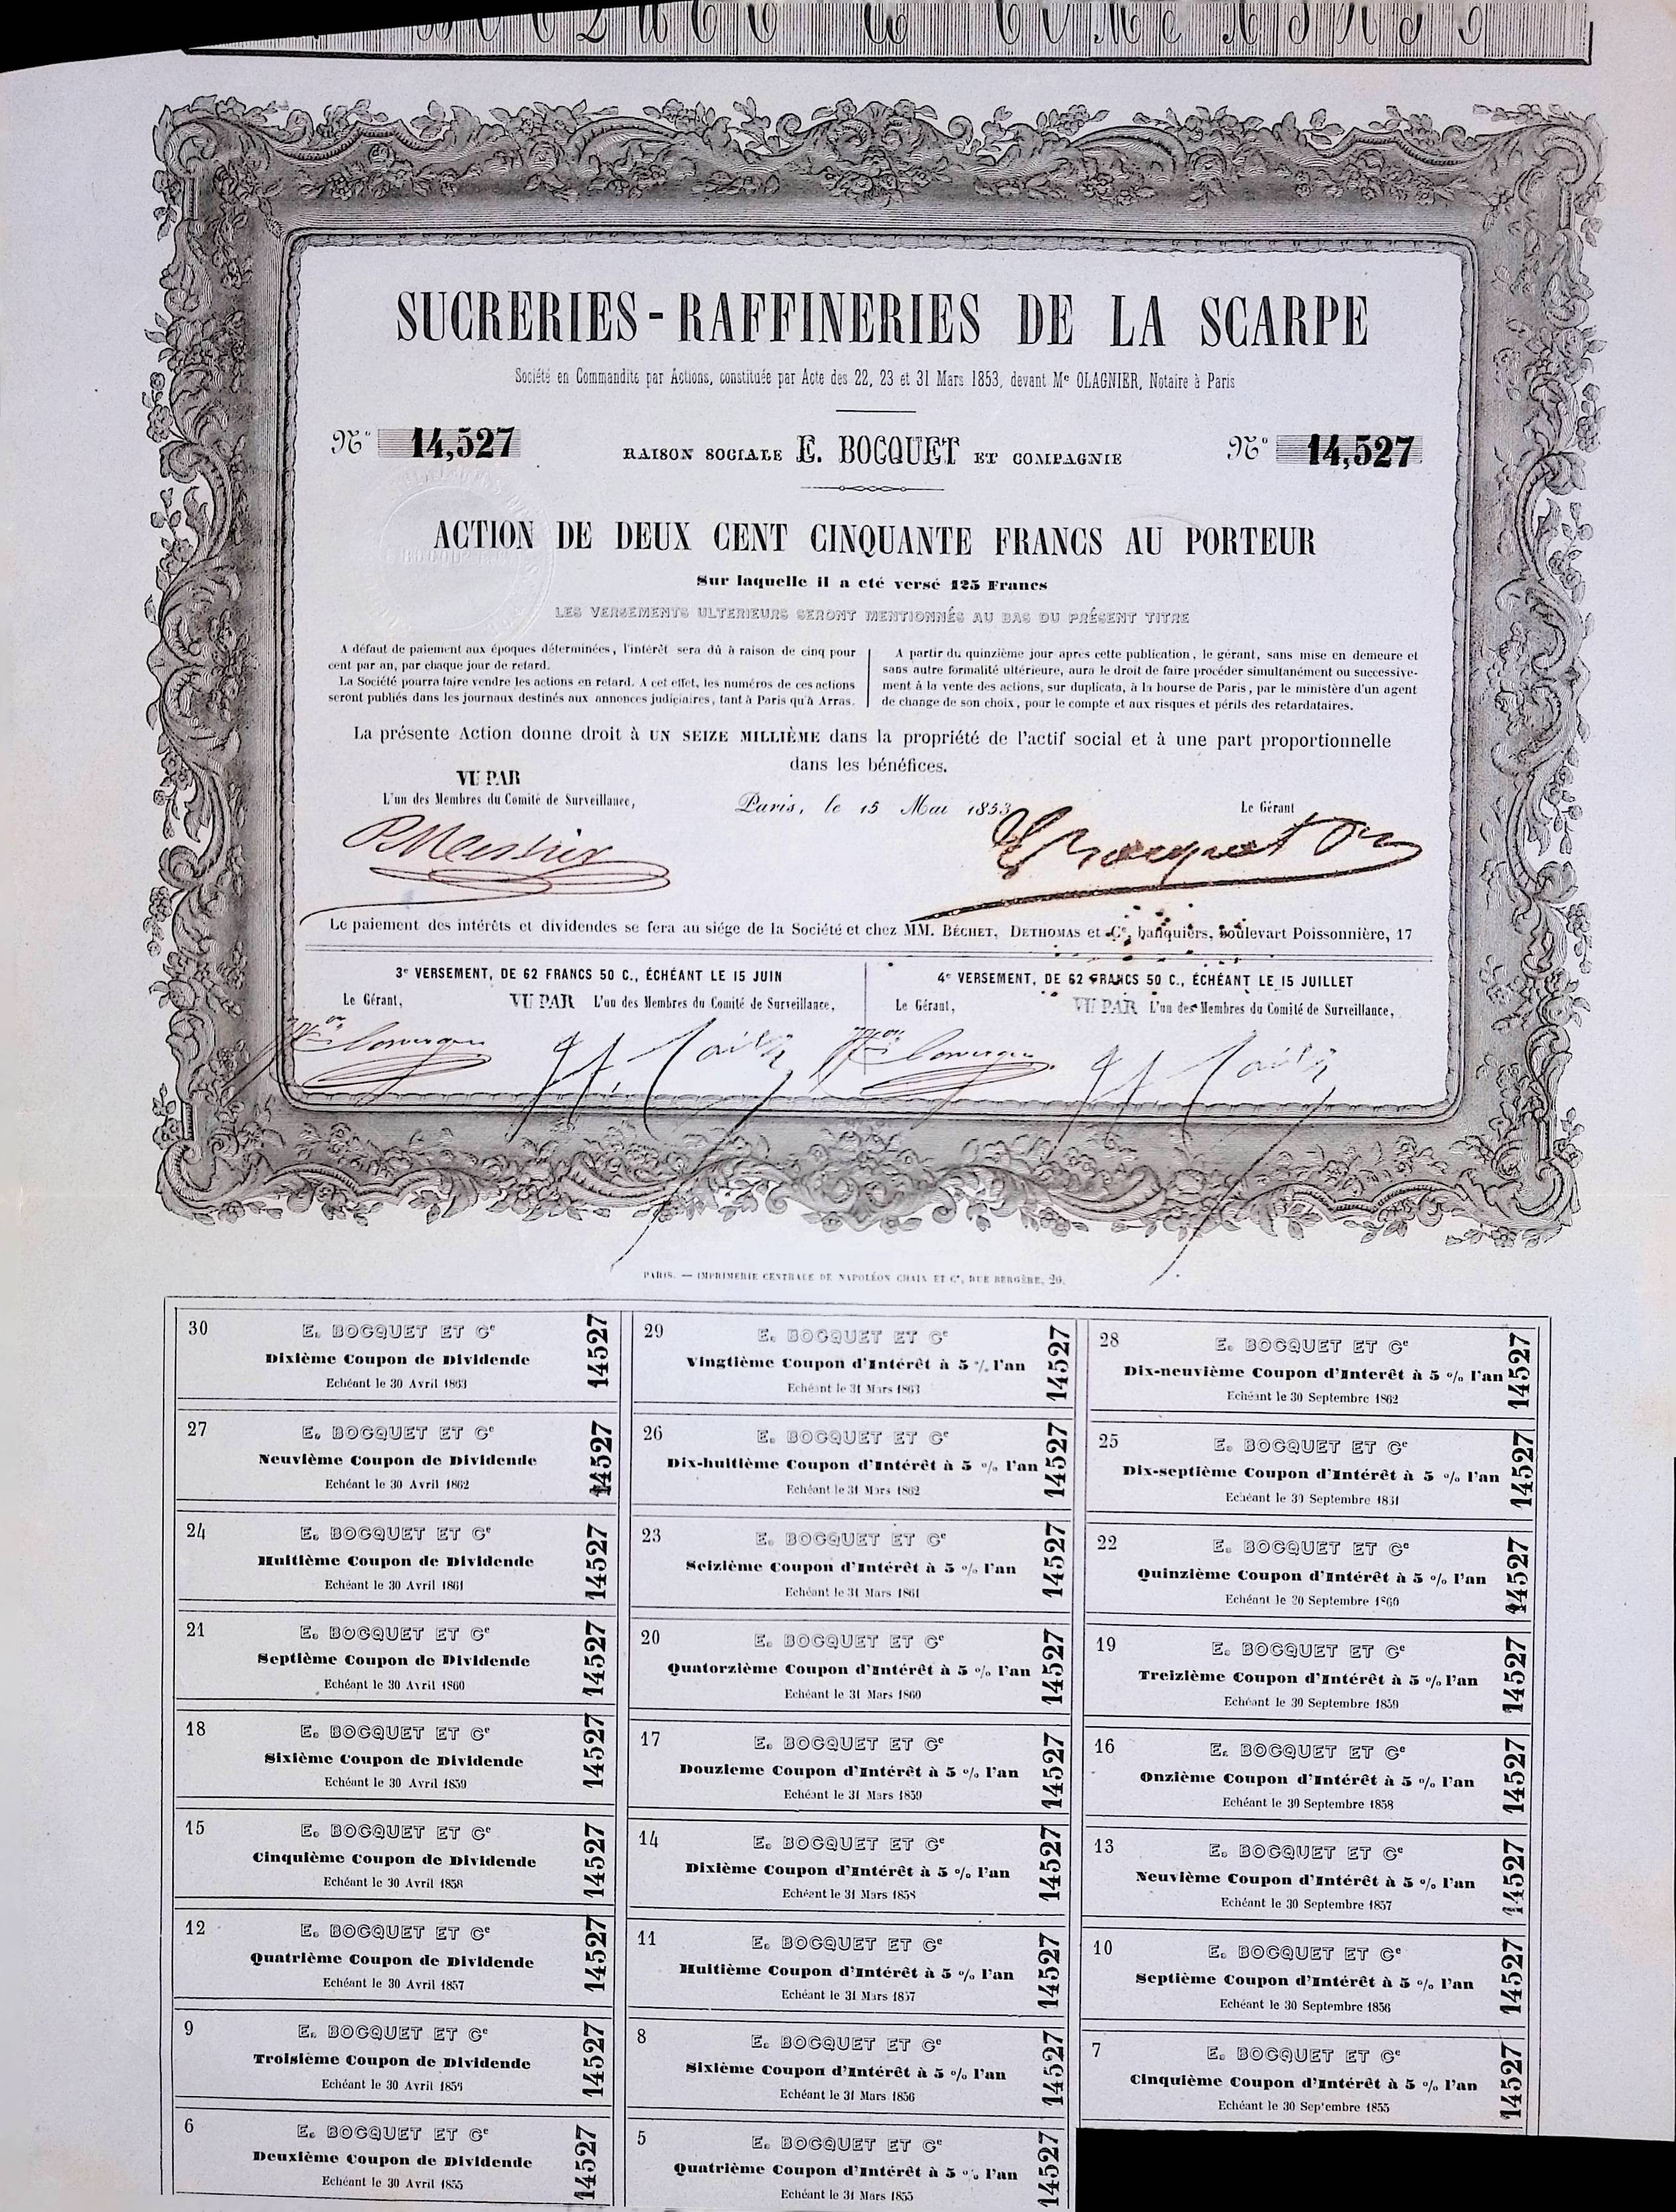 SUCRERIES-RAFFINERIES DE LA SCARPE
Société en Commandite par Actions, constituée par Acte des 22, 23 et 31 Mars 1853, devant Me OLAGNIER, Notaire à Paris
No 14,527
RAISON SOCIALE E. BOCQUET ET COMPAGNIE
No 14,527
ACTION DE DEUX CENT CINQUANTE FRANCS AU PORTEUR
Sur laquelle il a eté versé 125 Francs
LES VERSEMENTS ULTERIEURS SERONT MENTIONNÉS AU BAS DU PRÉSENT TITRE
A défaut de paiement aux époques déterminées, l'intérêt sera dû à raison de cinq pour
cent par an, par chaque jour de retard.
La Société pourra faire vendre les actions en retard. A cet effet, les numéros de ces actions
seront publiés dans les journaux destinés aux annonces judiciaires, tant à Paris qu'à Arras.
A partir du quinzième jour apres cette publication, le gérant, sans mise en demeure et
sans autre formalité ultérieure, aura le droit de faire procéder simultanément ou successive-
ment à la vente des actions, sur duplicata, à la bourse de Paris, par le ministère d'un agent
de change de son choix, pour le compte et aux risques et périls des retardataires.
La présente Action donne droit à UN SEIZE MILLIÈME dans la propriété de l'actif social et à une part proportionnelle
dans les bénéfices.
VU PAR
L'un des Membres du Comité de Surveillance,
Paris, le 15 Mai 1853
Le Gérant
Le paiement des intérêts et dividendes se fera au siége de la Société et chez MM. BÉCHET, DETHOMAS et Ce, banquiers, boulevart Poissonnière, 17
3e VERSEMENT, DE 62 FRANCS 50 C., ÉCHÉANT LE 15 JUIN
Le Gérant, VU PAR L'un des Membres du Comité de Surveillance,
4e VERSEMENT, DE 62 FRANCS 50 C., ÉCHÉANT LE 15 JUILLET
Le Gérant, VU PAR L'un des Membres du Comité de Surveillance,
PARIS. — IMPRIMERIE CENTRALE DE NAPOLÉON CHAIX ET Ce, RUE BERGÈRE, 20.
30 E. BOCQUET ET Ce
Dixième Coupon de Dividende
Echéant le 30 Avril 1863
14527
29 E. BOCQUET ET Ce
Vingtième Coupon d'Intérêt à 5 % l'an
Echéant le 31 Mars 1863
14527
28 E. BOCQUET ET Ce
Dix-neuvième Coupon d'Interêt à 5 % l'an
Echéant le 30 Septembre 1862
14527
27 E. BOCQUET ET Ce
Neuvième Coupon de Dividende
Echéant le 30 Avril 1862
14527
26 E. BOCQUET ET Ce
Dix-huitième Coupon d'Intérêt à 5 % l'an
Echéant le 31 Mars 1862
14527
25 E. BOCQUET ET Ce
Dix-septième Coupon d'Intérêt à 5 % l'an
Echéant le 30 Septembre 1861
14527
24 E. BOCQUET ET Ce
Huitième Coupon de Dividende
Echéant le 30 Avril 1861
14527
23 E. BOCQUET ET Ce
Seizième Coupon d'Intérêt à 5 % l'an
Echéant le 31 Mars 1861
14527
22 E. BOCQUET ET Ce
Quinzième Coupon d'Intérêt à 5 % l'an
Echéant le 20 Septembre 1860
14527
21 E. BOCQUET ET Ce
Septième Coupon de Dividende
Echéant le 30 Avril 1860
14527
20 E. BOCQUET ET Ce
Quatorzième Coupon d'Intérêt à 5 % l'an
Echéant le 31 Mars 1860
14527
19 E. BOCQUET ET Ce
Treizième Coupon d'Intérêt à 5 % l'an
Echéant le 30 Septembre 1859
14527
18 E. BOCQUET ET Ce
Sixième Coupon de Dividende
Echéant le 30 Avril 1859
14527
17 E. BOCQUET ET Ce
Douzieme Coupon d'Intérêt à 5 % l'an
Echéant le 31 Mars 1859
14527
16 E. BOCQUET ET Ce
Onzième Coupon d'Intérêt à 5 % l'an
Echéant le 30 Septembre 1858
14527
15 E. BOCQUET ET Ce
Cinquième Coupon de Dividende
Echéant le 30 Avril 1858
14527
14 E. BOCQUET ET Ce
Dixième Coupon d'Intérêt à 5 % l'an
Echéant le 31 Mars 1858
14527
13 E. BOCQUET ET Ce
Neuvième Coupon d'Intérêt à 5 % l'an
Echéant le 30 Septembre 1857
14527
12 E. BOCQUET ET Ce
Quatrième Coupon de Dividende
Echéant le 30 Avril 1857
14527
11 E. BOCQUET ET Ce
Huitième Coupon d'Intérêt à 5 % l'an
Echéant le 31 Mars 1857
14527
10 E. BOCQUET ET Ce
Septième Coupon d'Intérêt à 5 % l'an
Echéant le 30 Septembre 1856
14527
9 E. BOCQUET ET Ce
Troisième Coupon de Dividende
Echéant le 30 Avril 1856
14527
8 E. BOCQUET ET Ce
Sixième Coupon d'Intérêt à 5 % l'an
Echéant le 31 Mars 1856
14527
7 E. BOCQUET ET Ce
Cinquième Coupon d'Intérêt à 5 % l'an
Echéant le 30 Septembre 1855
14527
6 E. BOCQUET ET Ce
Deuxième Coupon de Dividende
Echéant le 30 Avril 1855
14527
5 E. BOCQUET ET Ce
Quatrième Coupon d'Intérêt à 5 % l'an
Echéant le 31 Mars 1855
14527